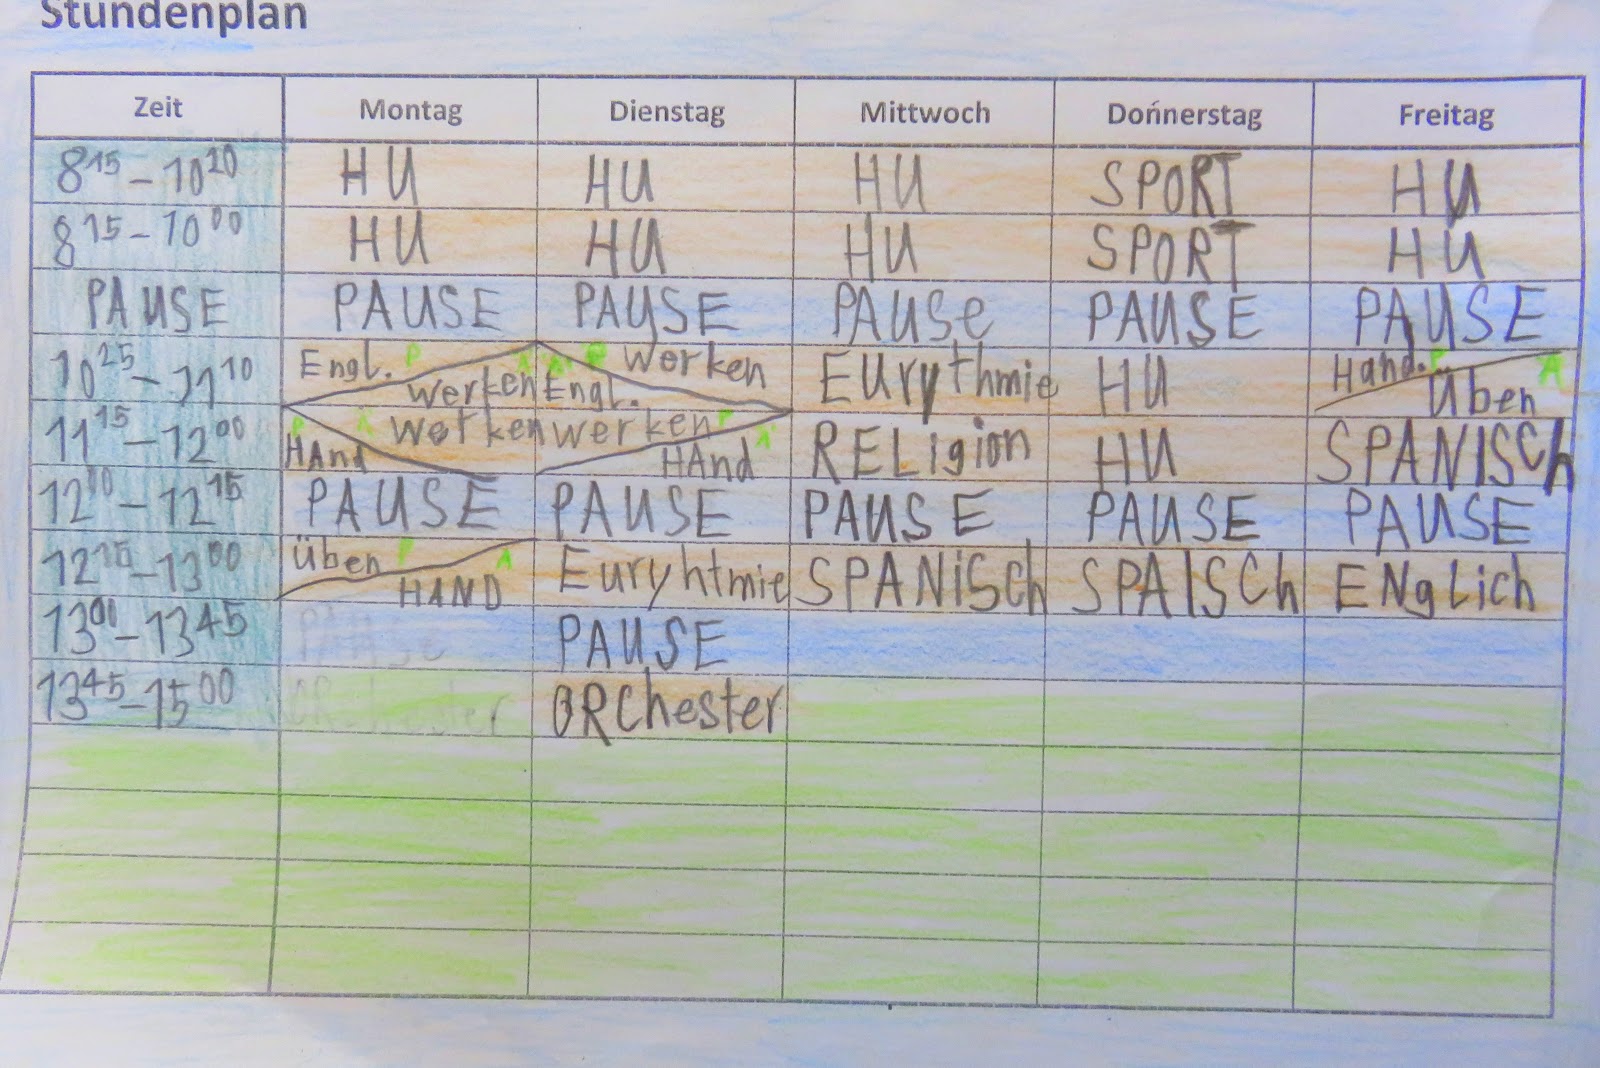 Stundenplan
Zeit Montag Dienstag Mittwoch Donnerstag Freitag
8 15 - 10 20 HU HU HU SPORT HU
8 15 - 10 00 HU HU HU SPORT HU
PAUSE PAUSE PAUSE PAUSe PAUSE PAUSE
10 25 - 11 10 Engl. P A Werken A Engl. P Werken Eurythmie HU Hand. P A Üben
11 15 - 12 00 P HAnd A Werken werken P HAnd A RELigion HU SPANISCh
12 00 - 12 15 PAUSE PAUSE PAUSE PAUSE PAUSE
12 15 - 13 00 Üben P A HAND Euryhtmie SPANiSCh SPAISCh ENgLich
13 00 - 13 45 PAUSe PAUSE
13 45 - 15 00 ORchester ORChester